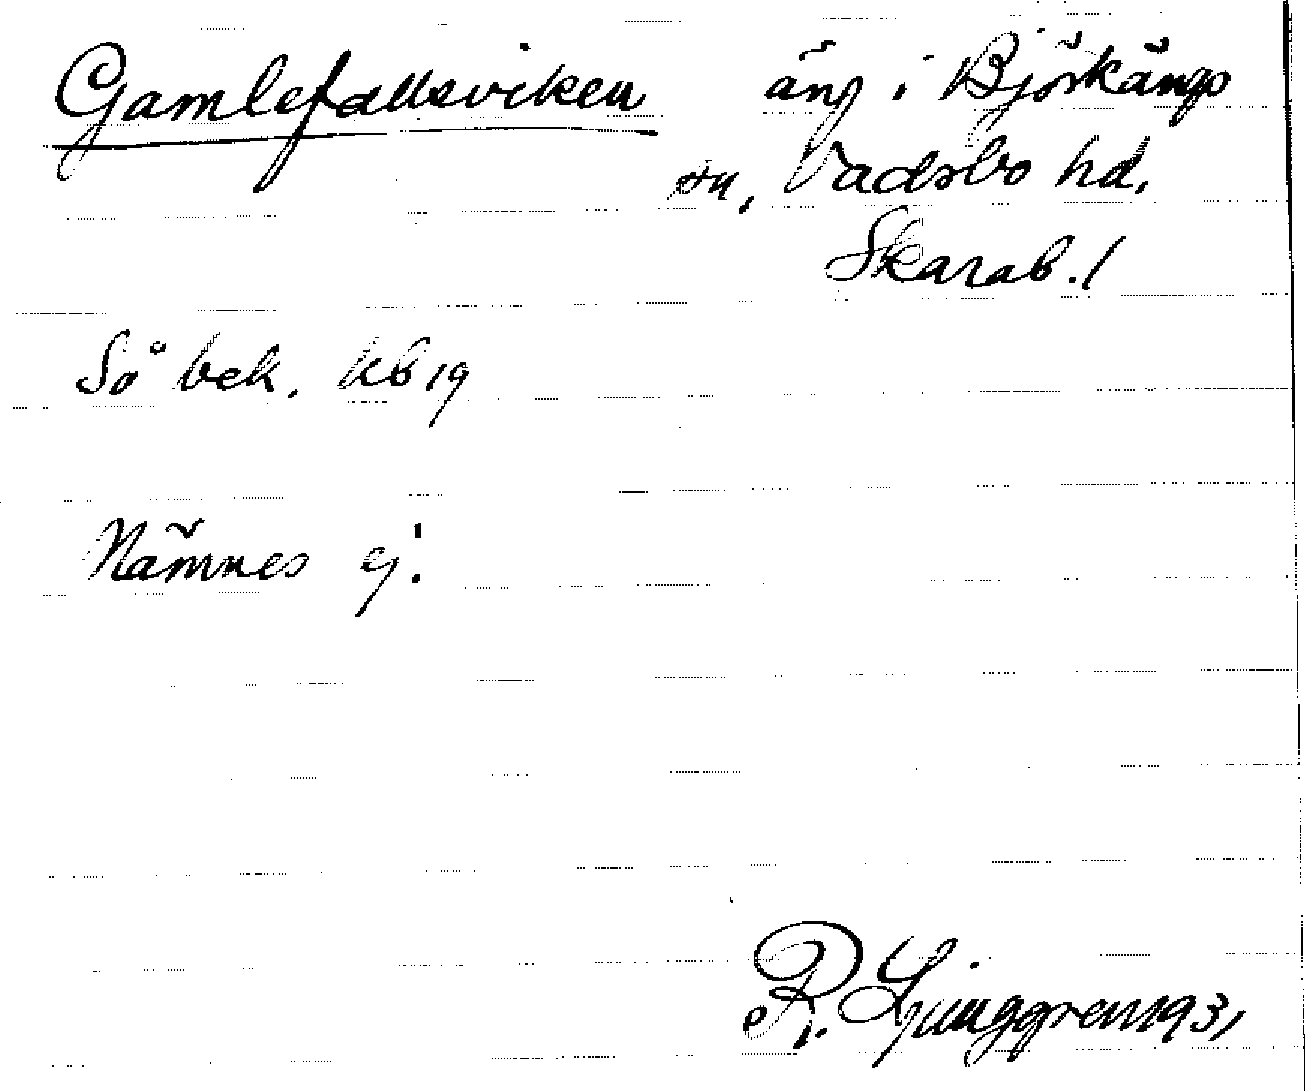 Gamlefallsviken äng i Björkängs
sn, Vadsbo hd,
Skarab. l
Så bek. kb 19
Nämnes ej!
R. Ljunggren 1931